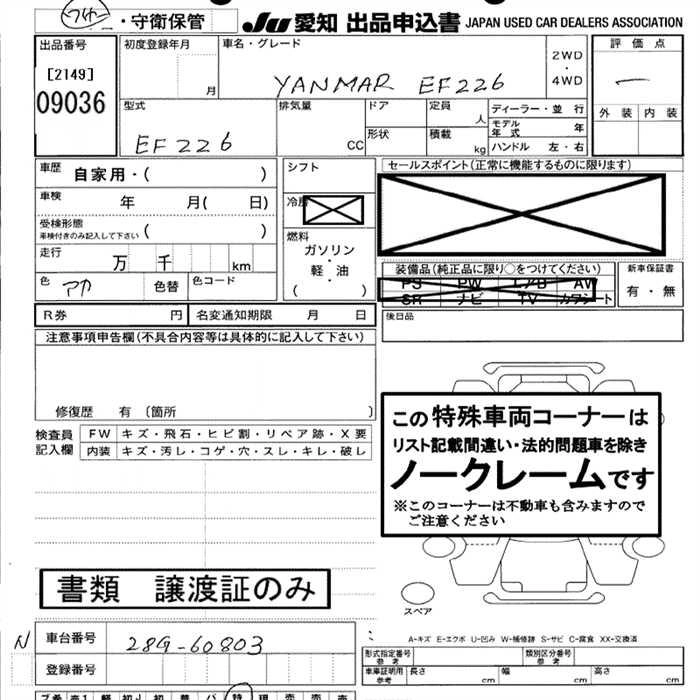 ・守衛保管
JU 愛知 出品申込書 JAPAN USED CAR DEALERS ASSOCIATION
出品番号
[2149]
09036
初度登録年月
月
車名・グレード
YANMAR EF226
2WD
・
4WD
評価点
一
外装 内装
型式
EF226
排気量
CC
ドア
形状
定員
人
積載
kg
ディーラー・並行
モデル年式 年
ハンドル 左・右
車歴 自家用・( )
車検 年 月( 日)
受検形態
車検付きのみ記入して下さい ( )
走行 万 千 km
色 アカ 色替 色コード
シフト
冷房
燃料
ガソリン
・
軽・油
( )
セールスポイント(正常に機能するものに限ります)
装備品(純正品に限り○をつけてください)
PS PW エアB AW
SR ナビ TV カワシート
新車保証書
有・無
R券 円 名変通知期限 月 日
後日品
注意事項申告欄(不具合内容等は具体的に記入して下さい)
修復歴 有 〔箇所 〕
検査員記入欄
FW キズ・飛石・ヒビ割・リペア跡・X要
内装 キズ・汚レ・コゲ・穴・スレ・キレ・破レ
この特殊車両コーナーは
リスト記載間違い・法的問題車を除き
ノークレームです
※このコーナーは不動車も含みますので
ご注意ください
書類 譲渡証のみ
スペア
A-キズ E-エクボ U-凹み W-補修跡 S-サビ C-腐食 XX-交換済
N 車台番号 28G-60803
登録番号
形式指定番号 参考
類別区分番号 参考
車庫証明用 参考 長さ cm 幅 cm 高さ cm